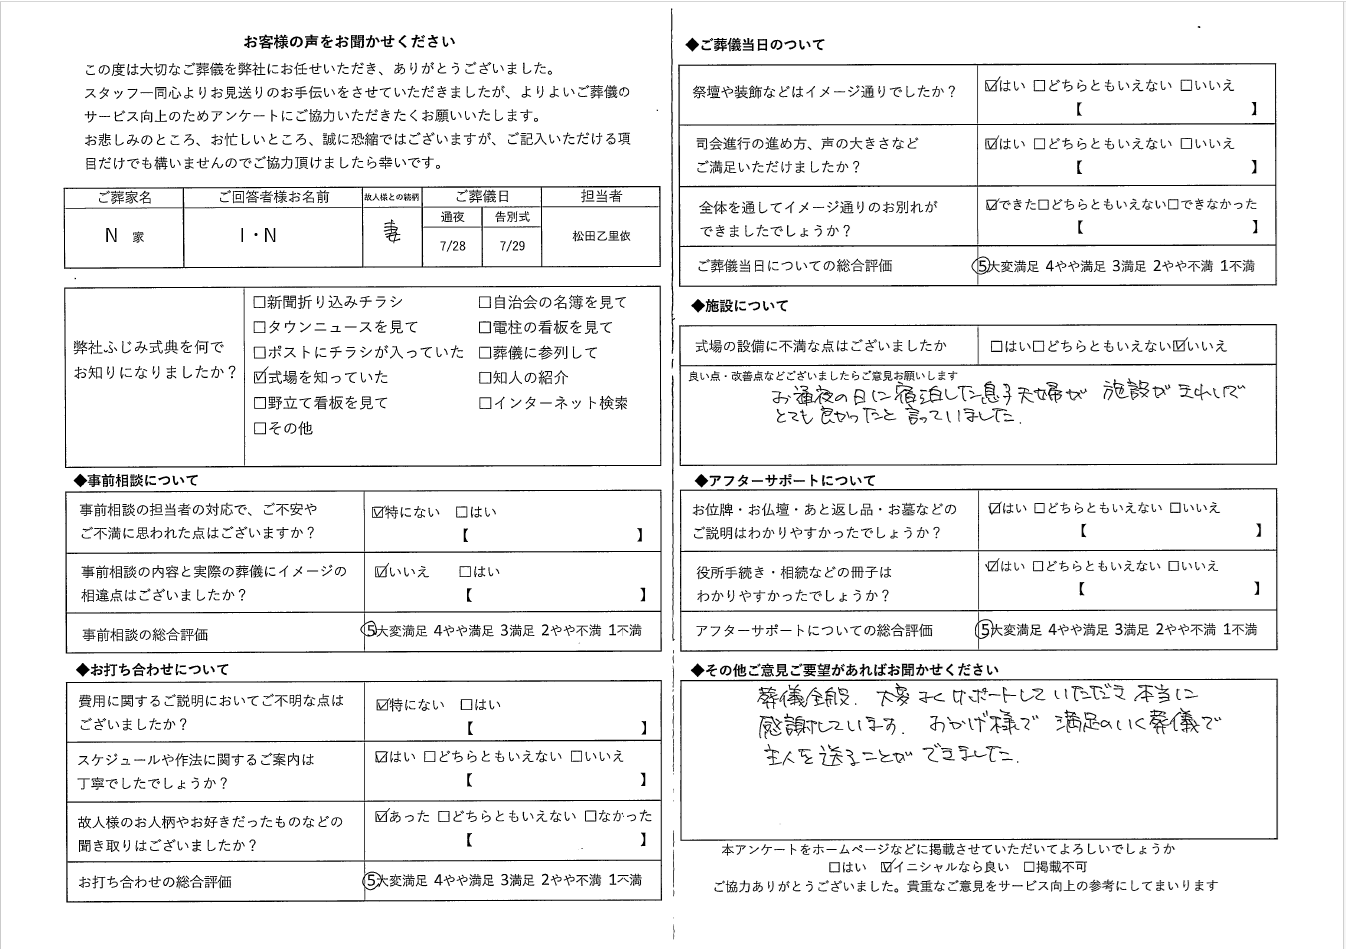 お客様の声をお聞かせください
この度は大切なご葬儀を弊社にお任せいただき、ありがとうございました。
スタッフ一同心よりお見送りのお手伝いをさせていただきましたが、よりよいご葬儀の
サービス向上のためアンケートにご協力いただきたくお願いいたします。
お悲しみのところ、お忙しいところ、誠に恐縮ではございますが、ご記入いただける項
目だけでも構いませんのでご協力頂けましたら幸いです。
ご葬家名 ご回答者様お名前 故人様との続柄 ご葬儀日 担当者
通夜 告別式
N 家 I・N 妻 7/28 7/29 松田乙里依
弊社ふじみ式典を何で
お知りになりましたか?
☐新聞折り込みチラシ ☐自治会の名簿を見て
☐タウンニュースを見て ☐電柱の看板を見て
☐ポストにチラシが入っていた ☐葬儀に参列して
☑式場を知っていた ☐知人の紹介
☐野立て看板を見て ☐インターネット検索
☐その他
◆事前相談について
事前相談の担当者の対応で、ご不安や
ご不満に思われた点はございますか?
☑特にない ☐はい
【 】
事前相談の内容と実際の葬儀にイメージの
相違点はございましたか?
☑いいえ ☐はい
【 】
事前相談の総合評価 ⑤大変満足 4やや満足 3満足 2やや不満 1不満
◆お打ち合わせについて
費用に関するご説明においてご不明な点は
ございましたか?
☑特にない ☐はい
【 】
スケジュールや作法に関するご案内は
丁寧でしたでしょうか?
☑はい ☐どちらともいえない ☐いいえ
【 】
故人様のお人柄やお好きだったものなどの
聞き取りはございましたか?
☑あった ☐どちらともいえない ☐なかった
【 】
お打ち合わせの総合評価 ⑤大変満足 4やや満足 3満足 2やや不満 1不満
◆ご葬儀当日のついて
祭壇や装飾などはイメージ通りでしたか?
☑はい ☐どちらともいえない ☐いいえ
【 】
司会進行の進め方、声の大きさなど
ご満足いただけましたか?
☑はい ☐どちらともいえない ☐いいえ
【 】
全体を通してイメージ通りのお別れが
できましたでしょうか?
☑できた☐どちらともいえない☐できなかった
【 】
ご葬儀当日についての総合評価 ⑤大変満足 4やや満足 3満足 2やや不満 1不満
◆施設について
式場の設備に不満な点はございましたか ☐はい☐どちらともいえない☑いいえ
良い点・改善点などございましたらご意見お願いします
お通夜の日に宿泊した息子夫婦が 施設がきれいで
とても良かったと言っていました.
◆アフターサポートについて
お位牌・お仏壇・あと返し品・お墓などの
ご説明はわかりやすかったでしょうか?
☑はい ☐どちらともいえない ☐いいえ
【 】
役所手続き・相続などの冊子は
わかりやすかったでしょうか?
☑はい ☐どちらともいえない ☐いいえ
【 】
アフターサポートについての総合評価 ⑤大変満足 4やや満足 3満足 2やや不満 1不満
◆その他ご意見ご要望があればお聞かせください
葬儀全般. 大変よくサポートしていただき 本当に
感謝しています. おかげ様で 満足のいく葬儀で
主人を送ることが できました.
本アンケートをホームページなどに掲載させていただいてよろしいでしょうか
☐はい ☑イニシャルなら良い ☐掲載不可
ご協力ありがとうございました。貴重なご意見をサービス向上の参考にしてまいります